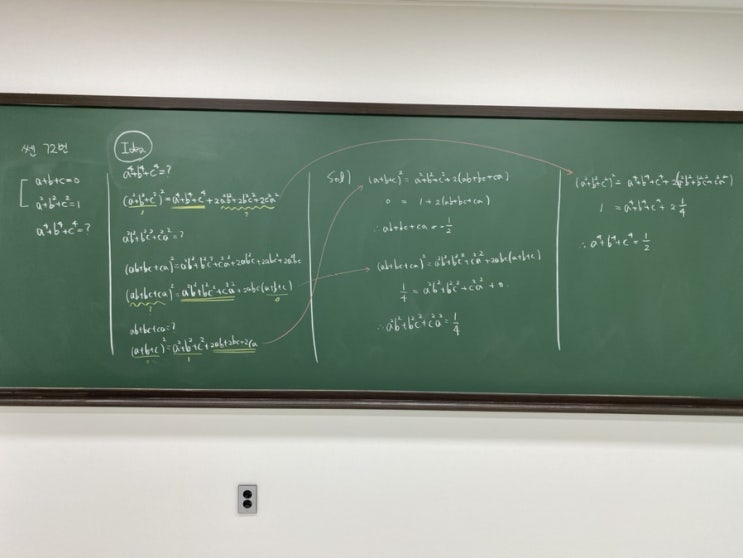 쎈 72번
a+b+c=0
a²+b²+c²=1
a⁴+b⁴+c⁴=?
Idea
a⁴+b⁴+c⁴=?
(a²+b²+c²)²=a⁴+b⁴+c⁴+2a²b²+2b²c²+2c²a²
1 ?
a²b²+b²c²+c²a²=?
(ab+bc+ca)²=a²b²+b²c²+c²a²+2ab²c+2abc²+2a²bc
(ab+bc+ca)²=a²b²+b²c²+c²a²+2abc(a+b+c)
? 0
ab+bc+ca=?
(a+b+c)²=a²+b²+c²+2ab+2bc+2ca
0 1
Sol)
(a+b+c)²=a²+b²+c²+2(ab+bc+ca)
0 = 1+2(ab+bc+ca)
∴ab+bc+ca=-1/2
(ab+bc+ca)²=a²b²+b²c²+c²a²+2abc(a+b+c)
1/4=a²b²+b²c²+c²a²+0.
∴a²b²+b²c²+c²a²=1/4
(a²+b²+c²)²=a⁴+b⁴+c⁴+2(a²b²+b²c²+c²a²)
1=a⁴+b⁴+c⁴+2·1/4
∴a⁴+b⁴+c⁴=1/2